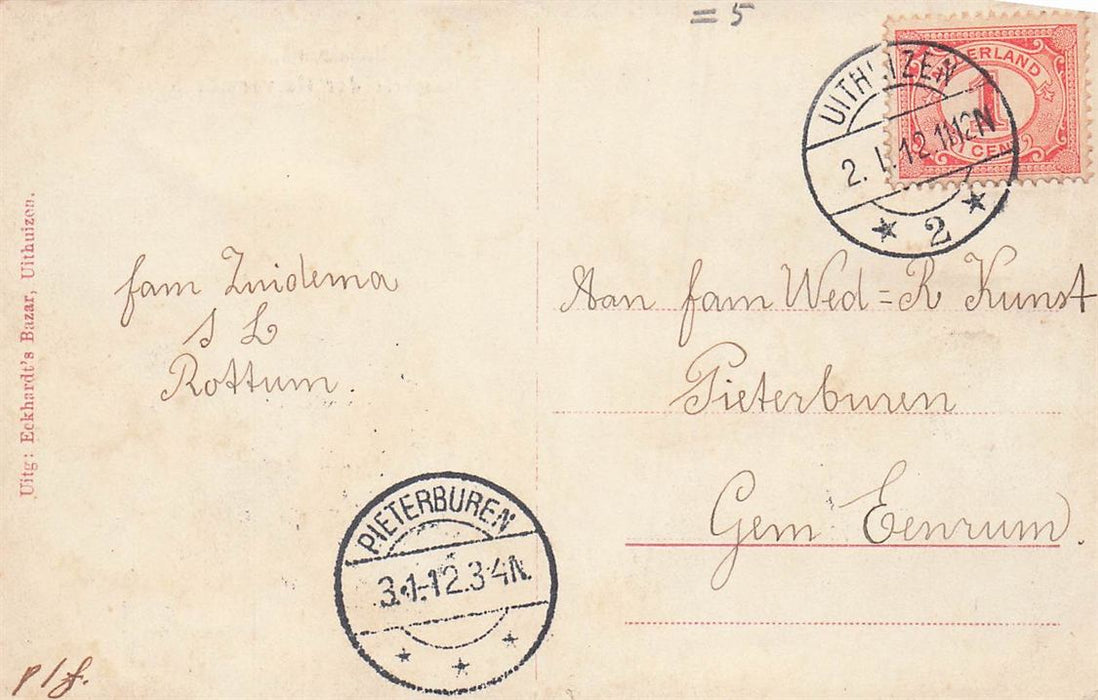 = 5
NEDERLAND
1
1 CENT
UITHUIZEN
2. 1. 12. 11-12N
2
fam Zuidema
s L
Rottum.
Aan fam Wed = R Kunst
Pieterburen
Gem Eenrum.
PIETERBUREN
3.1.-12.3-4N.
Uitg: Eckhardt's Bazar, Uithuizen.